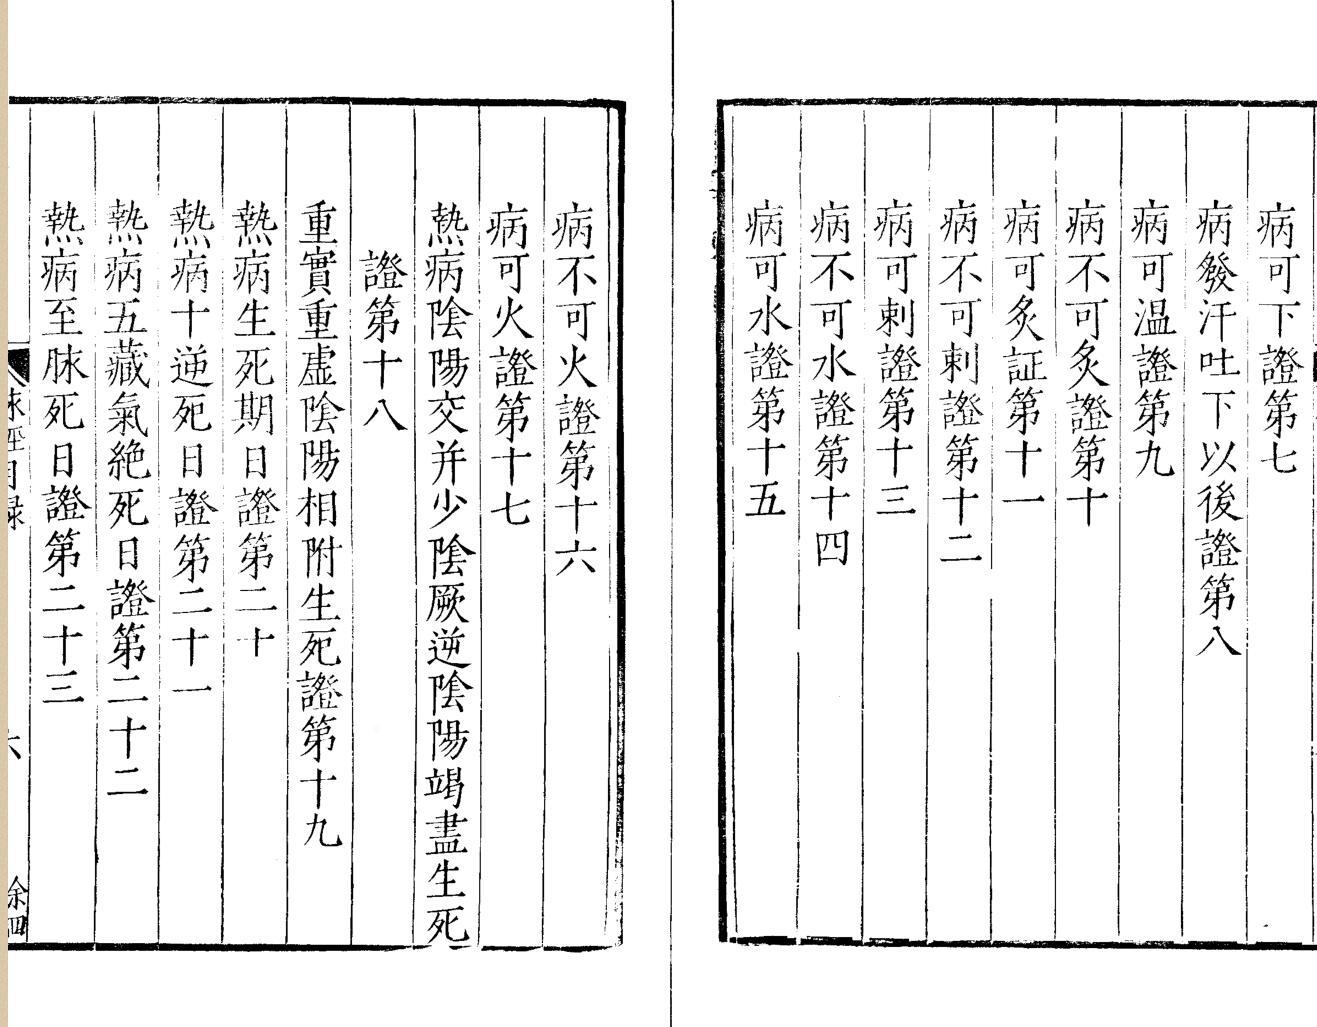 病可下證第七
病發汗吐下以後證第八
病可温證第九
病不可炙證第十
病可炙証第十一
病不可刺證第十二
病可刺證第十三
病不可水證第十四
病可水證第十五
病不可火證第十六
病可火證第十七
熱病陰陽交并少陰厥逆陰陽竭盡生死
證第十八
重實重虛陰陽相附生死證第十九
熱病生死期日證第二十
熱病十逆死日證第二十一
熱病五藏氣絶死日證第二十二
熱病至脉死日證第二十三
脉經目録
六